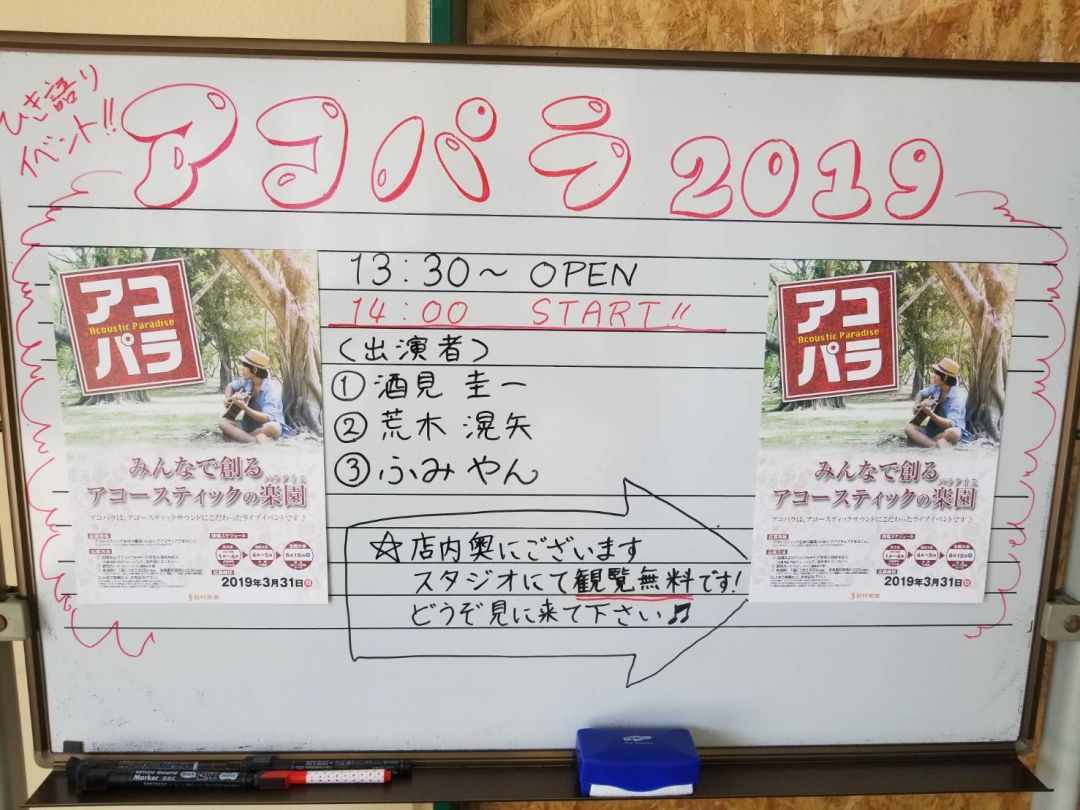 ひき語り
イベント!!
アコパラ 2019
13:30〜 OPEN
14:00 START!!
(出演者)
① 酒見 圭一
② 荒木 滉矢
③ ふみやん
☆店内奥にございます
スタジオにて観覧無料です!
どうぞ見に来て下さい♫
アコ
Acoustic Paradise
パラ
みんなで創る
パラダイス
アコースティックの楽園
アコパラは、アコースティックサウンドにこだわったライブイベントです♪
2019年3月31日㊐
アコ
Acoustic Paradise
パラ
みんなで創る
パラダイス
アコースティックの楽園
アコパラは、アコースティックサウンドにこだわったライブイベントです♪
2019年3月31日㊐
White Board
Marker